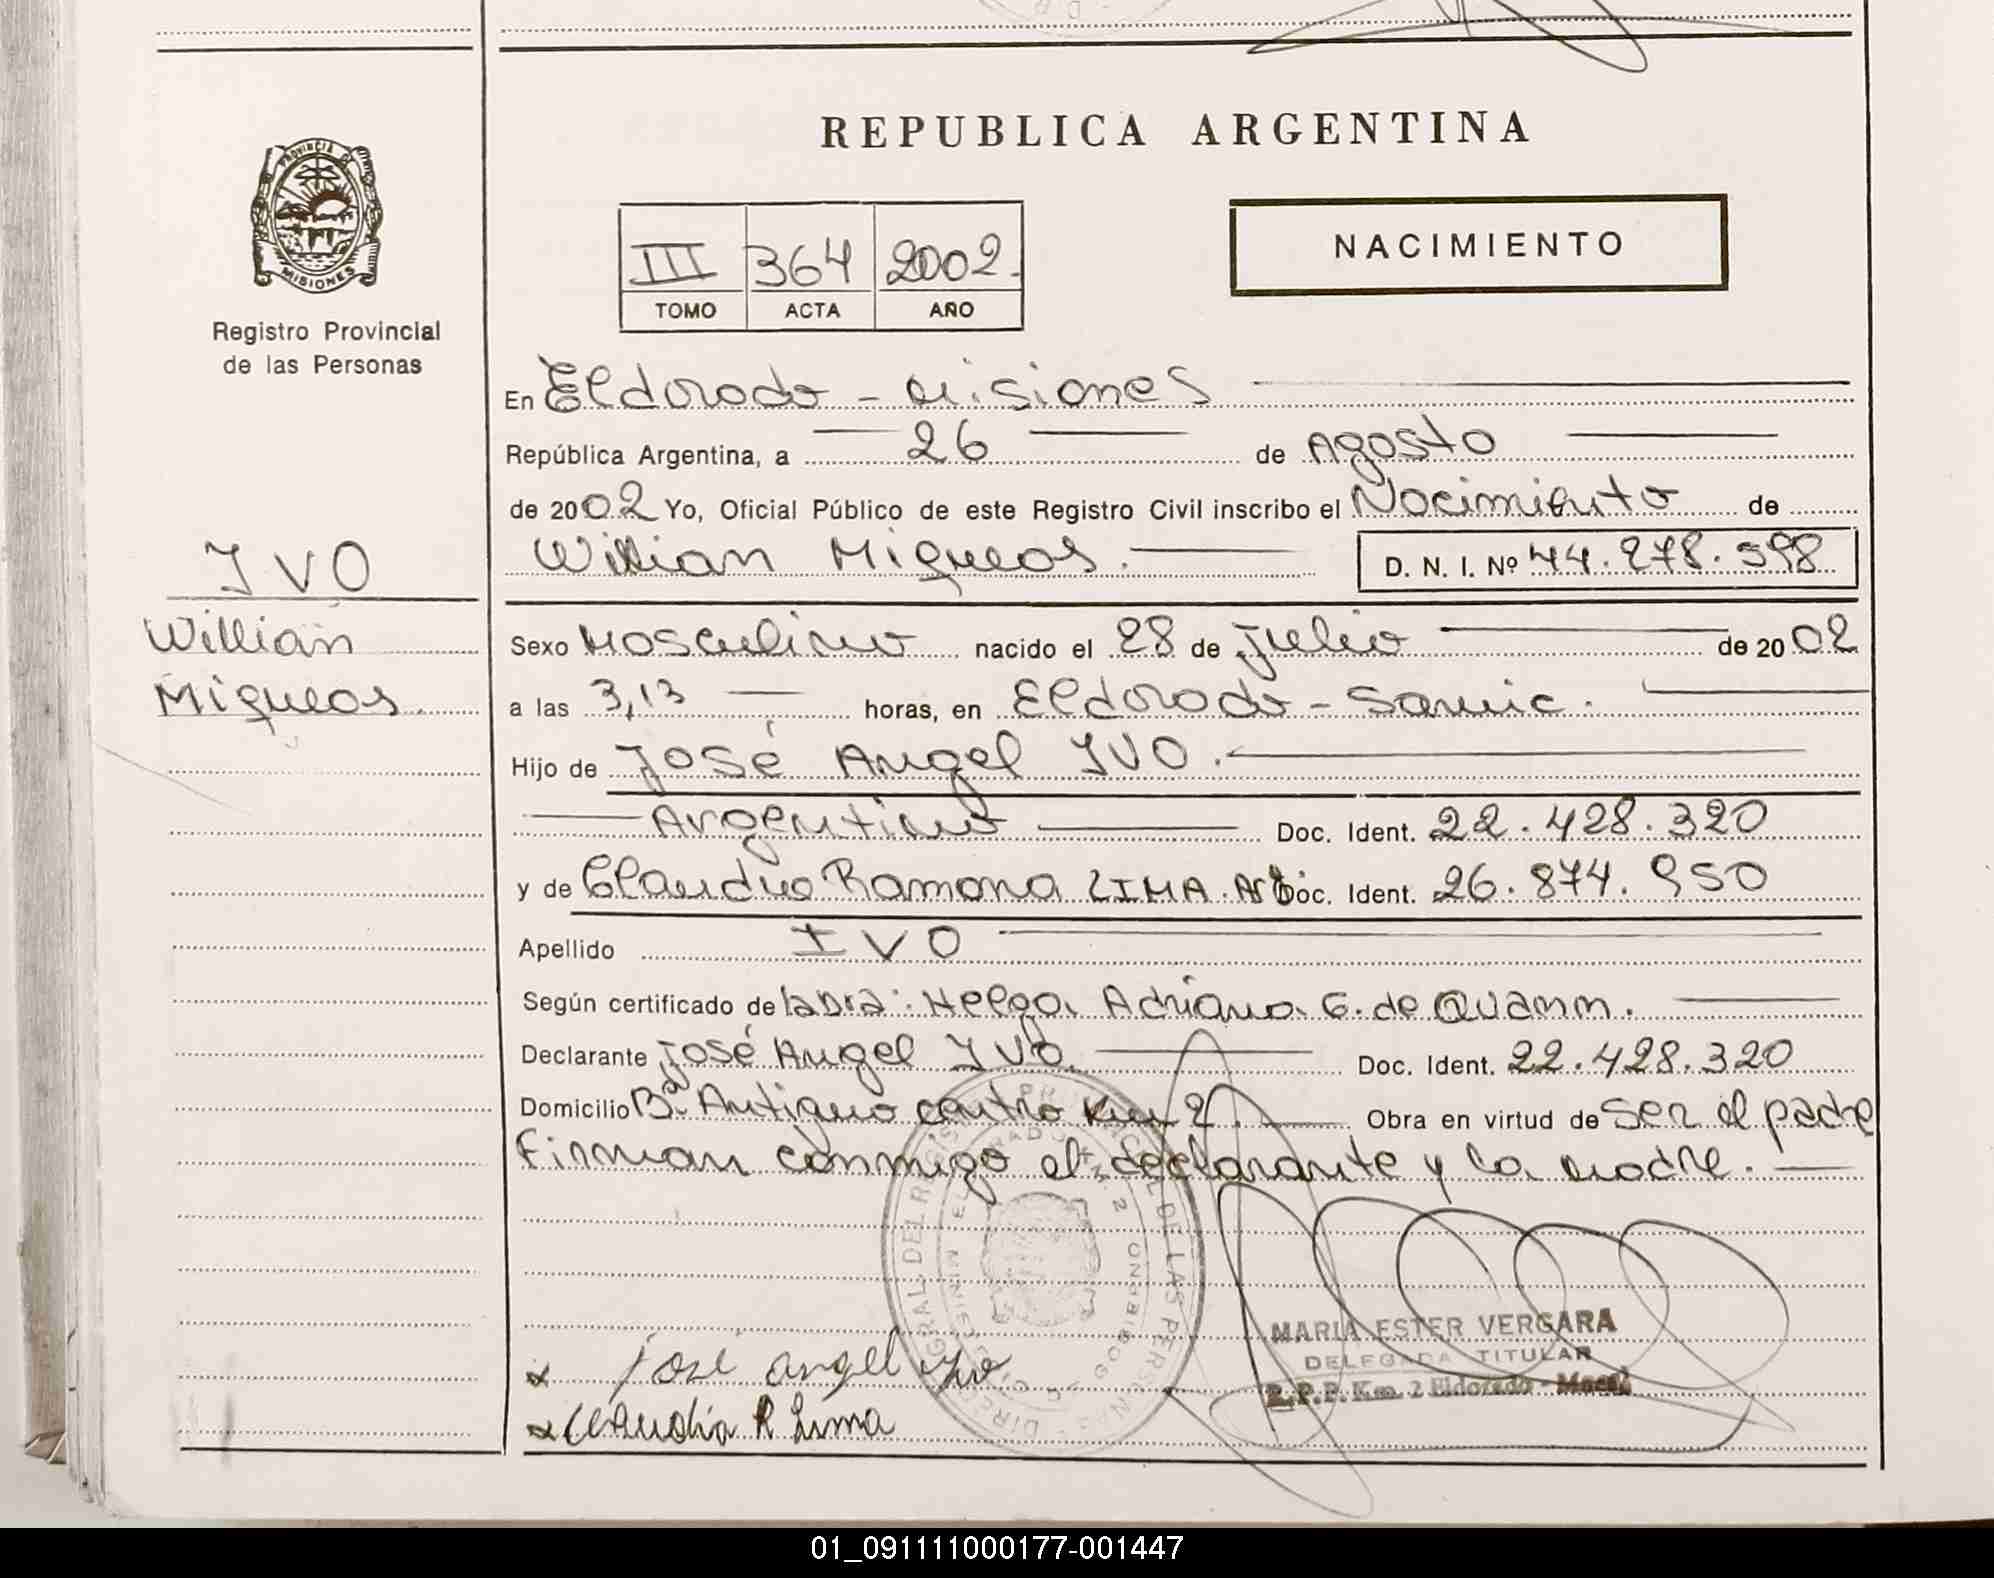 REPUBLICA ARGENTINA
PROVINCIA DE
MISIONES
Registro Provincial
de las Personas
III 364 2002
TOMO ACTA AÑO
NACIMIENTO
En Eldorado - Misiones
República Argentina, a 26 de Agosto
de 2002 Yo, Oficial Público de este Registro Civil inscribo el Nacimiento de
Willian Miqueas. D. N. I. Nº 44.278.598
IVO
Willian
Miqueas
Sexo Masculino nacido el 28 de Julio de 2002
a las 3,13 horas, en Eldorado - Samic.
Hijo de José Angel IVO.
Argentino Doc. Ident. 22.428.320
y de Claudia Ramona LIMA. Doc. Ident. 26.874.950
Apellido IVO
Según certificado de labra: Helga Adriana G. de Quamm.
Declarante José Angel IVO. Doc. Ident. 22.428.320
Domicilio Bº Antiguo centro Km 2. Obra en virtud de Ser el padre
Firman conmigo el declarante y la madre.
José angel Ivo
Claudia R Lima
MARIA ESTER VERGARA
DELEGADA TITULAR
R.P.P. Km. 2 Eldorado -
01_091111000177-001447